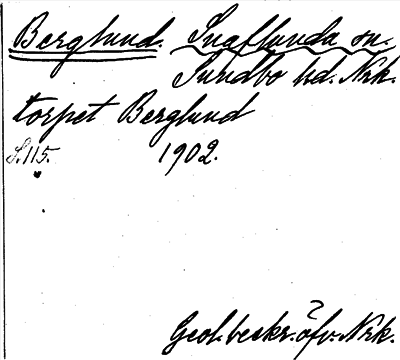 Berglund. Snaflunda sn.
Sundbo hd. Nrk.
torpet Berglund
S. 115. 1902.
Geol. beskr. öfv. Nrk.